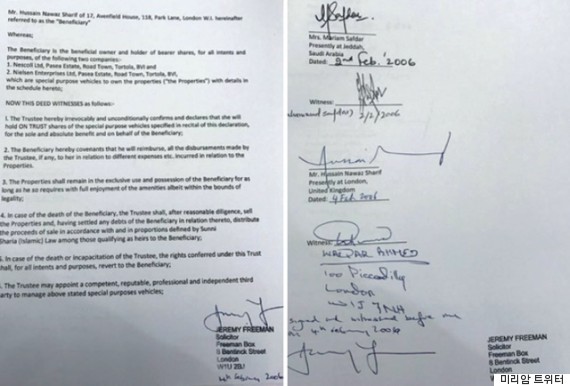 Mr. Hussain Nawaz Sharif of 17, Avenfield House, 118, Park Lane, London W.I. hereinafter
referred to as the "Beneficiary"
Whereas;
The Beneficiary is the beneficial owner and holder of bearer shares, for all intents and
purposes, of the following two companies:-
1. Nescoll Ltd, Pasea Estate, Road Town, Tortola, BVI and
2. Nielsen Enterprises Ltd, Pasea Estate, Road Town, Tortola, BVI,
which are special purpose vehicles to own the properties ("the Properties") with details in
the schedule hereto;
NOW THIS DEED WITNESSES as follows:-
1. The Trustee hereby irrevocably and unconditionally confirms and declares that she will
hold ON TRUST shares of the special purpose vehicles specified in recital of this declaration,
for the sole and absolute benefit and on behalf of the Beneficiary;
2. The Beneficiary hereby covenants that he will reimburse, all the disbursements made by
the Trustee, if any, to her in relation to different expenses etc. incurred in relation to the
Properties.
3. The Properties shall remain in the exclusive use and possession of the Beneficiary for as
long as he so requires with full enjoyment of the amenities albeit within the bounds of
legality;
4. In case of the death of the Beneficiary, the Trustee shall, after reasonable diligence, sell
the Properties and, having settled any debts of the Beneficiary in relation thereto, distribute
the proceeds of sale in accordance with and in proportions defined by Sunni
Sharia (Islamic) Law among those qualifying as heirs to the Beneficiary;
5. In case of the death or incapacitation of the Trustee, the rights conferred under this Trust
shall, for all intents and purposes, revert to the Beneficiary;
The Trustee may appoint a competent, reputable, professional and independent third
party to manage above stated special purposes vehicles;
JEREMY FREEMAN
Solicitor
Freeman Box
8 Bentinck Street
London
W1U 2BJ
4th February 2006
Mrs. Mariam Safdar
Presently at Jeddah,
Saudi Arabia
Dated: 2nd Feb. 2006
Witness:
2/2/2006
Mr. Hussain Nawaz Sharif
Presently at London,
United Kingdom
Dated: 4 Feb 2006
Witness:
WAQAR AHMED
100 Piccadilly
London
W1J 7NH
signed and witnessed before me
on 4th February 2006
JEREMY FREEMAN
Solicitor
Freeman Box
8 Bentinck Street
London
미리암 트위터